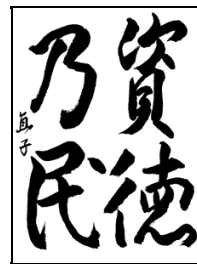 資徳
乃民
直子